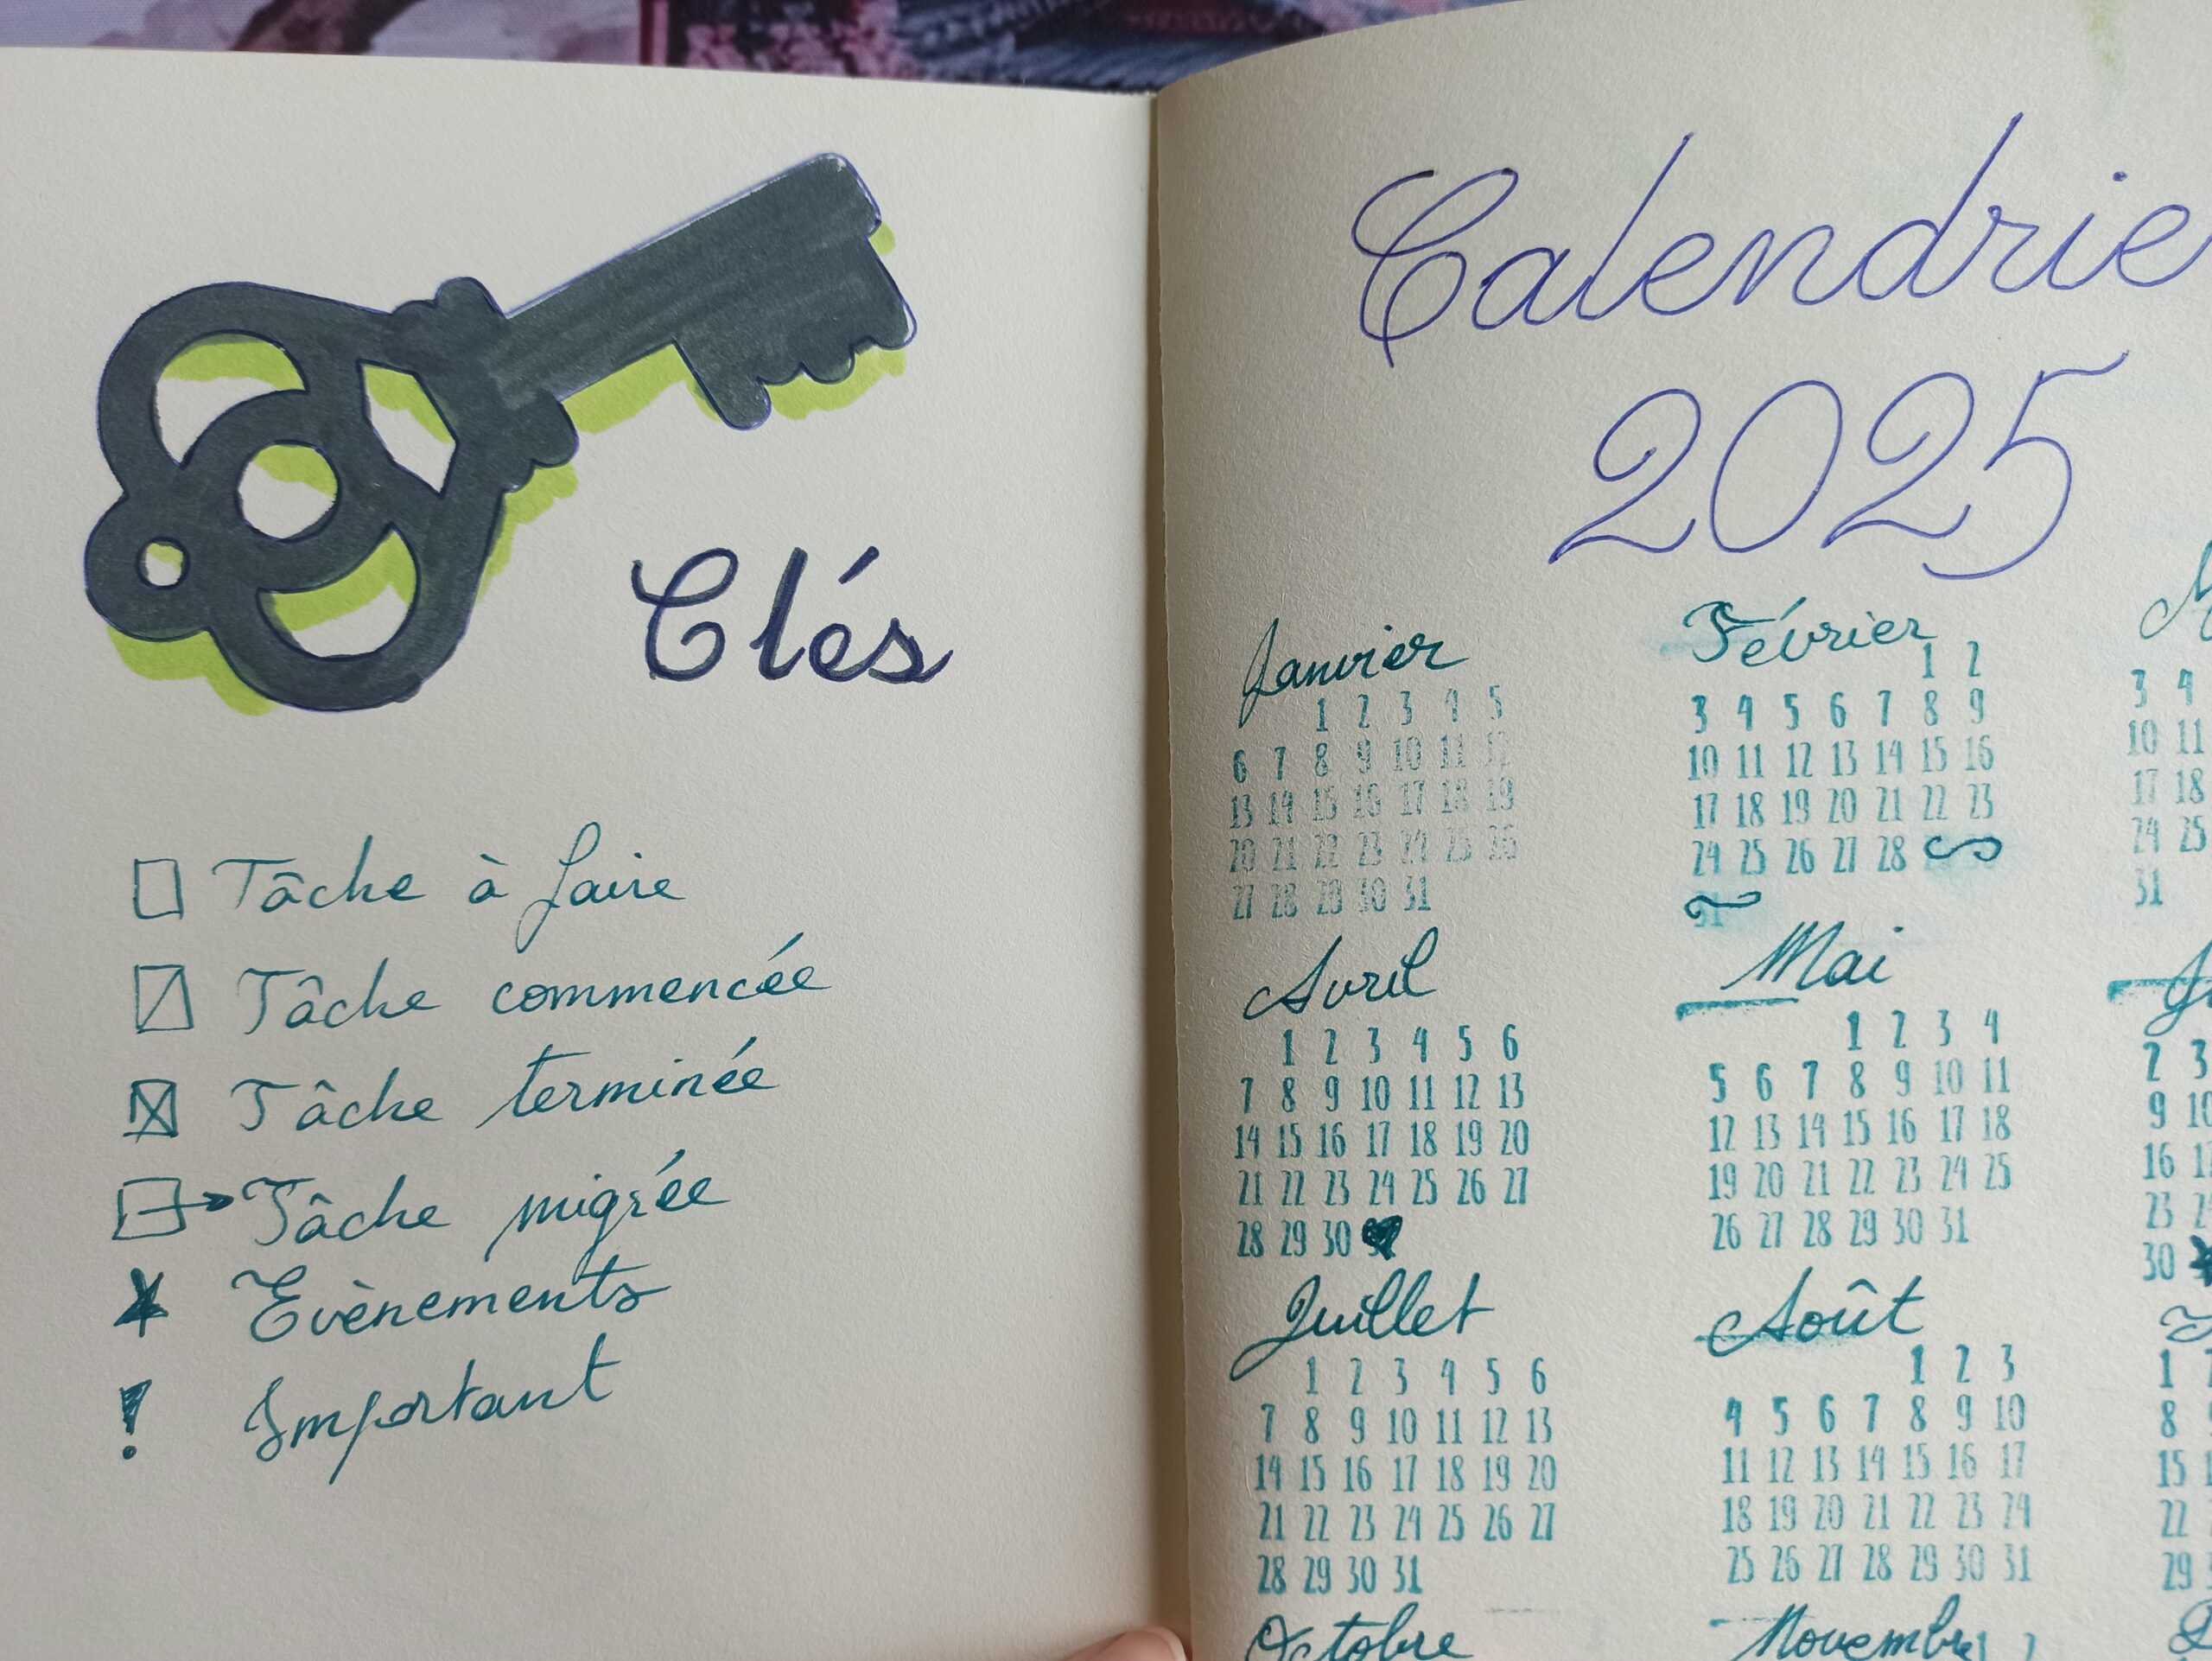 Clés
□ Tâche à faire
Tâche commencée
Tâche terminée
Tâche migrée
Evènements
! Important
Calendrie
2025
Janvier
1 2 3 4 5
6 7 8 9 10 11 12
13 14 15 16 17 18 19
20 21 22 23 24 25 26
27 28 29 30 31
Février
1 2
3 4 5 6 7 8 9
10 11 12 13 14 15 16
17 18 19 20 21 22 23
24 25 26 27 28
3 4
10 11
17 18
24 25
31
Avril
1 2 3 4 5 6
7 8 9 10 11 12 13
14 15 16 17 18 19 20
21 22 23 24 25 26 27
28 29 30
Mai
1 2 3 4
5 6 7 8 9 10 11
12 13 14 15 16 17 18
19 20 21 22 23 24 25
26 27 28 29 30 31
2 3
9 10
16
23
30
Juillet
1 2 3 4 5 6
7 8 9 10 11 12 13
14 15 16 17 18 19 20
21 22 23 24 25 26 27
28 29 30 31
Août
1 2 3
4 5 6 7 8 9 10
11 12 13 14 15 16 17
18 19 20 21 22 23 24
25 26 27 28 29 30 31
1
8
15
22
29
Octobre
Novembre
1 2